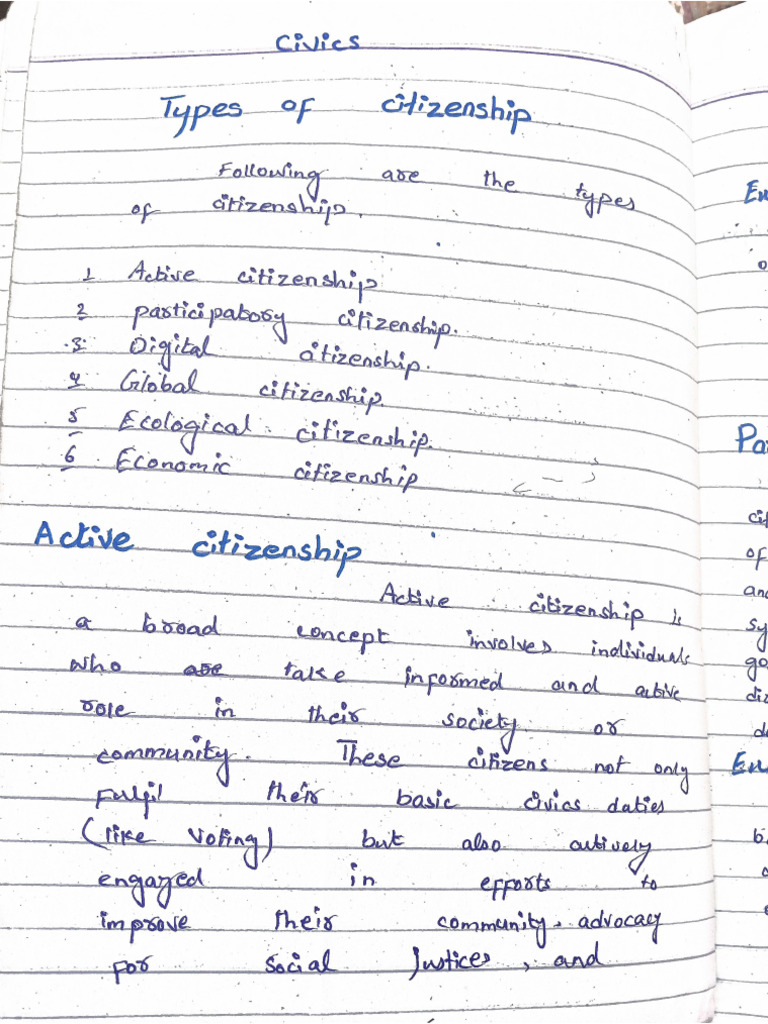 Civics
Types of citizenship
Following are the types
of citizenship.
1 Active citizenship
2 participatory citizenship.
3 Digital citizenship.
4 Global citizenship.
5 Ecological citizenship.
6 Economic citizenship
Active citizenship
Active citizenship is
a broad concept involves individuals
who are take informed and active
role in their society or
community. These citizens not only
fulfil their basic civics duties
(like voting) but also actively
engayed in efforts to
improve their community, advocacy
for social Justices, and